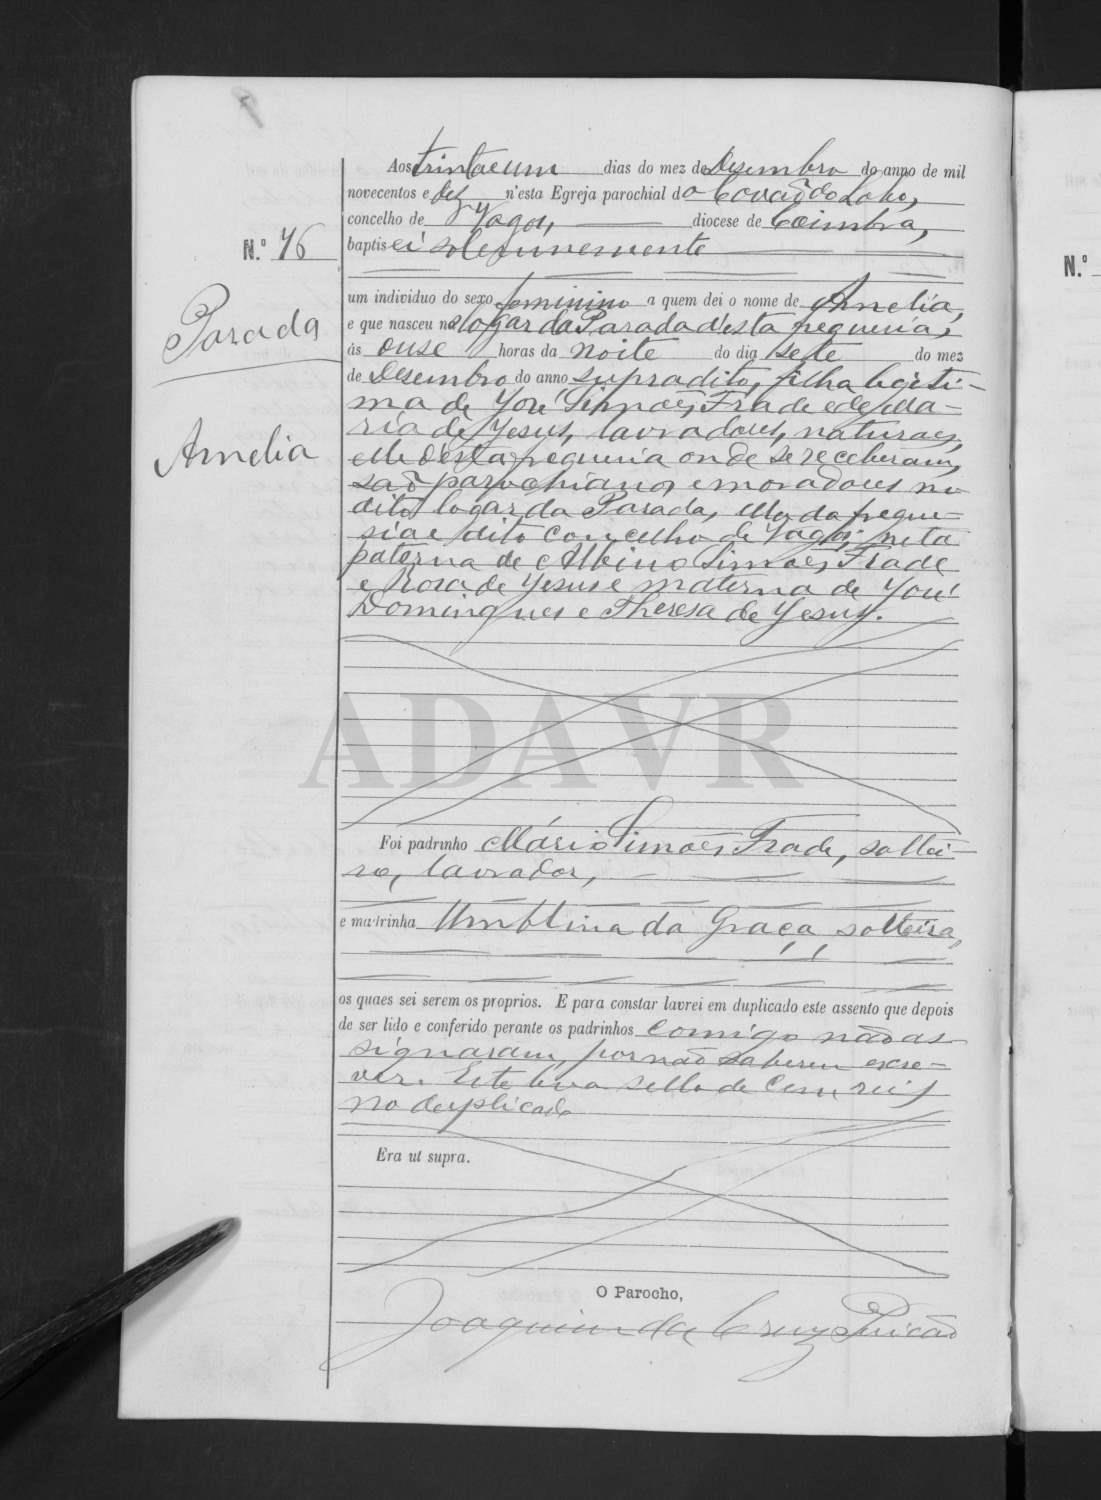 Aos trinta e um dias do mez de Desembro do anno de mil
novecentos e dez n'esta Egreja parochial do Covão do Lobo,
concelho de Vagos, diocese de Coimbra,
N.º 76
baptisei solemnemente
N.º
um individuo do sexo feminino a quem dei o nome de Amelia,
Parada
e que nasceu no logar da Parada d'esta freguesia,
ás onse horas da noite do dia sete do mez
de Desembro do anno supradito, filha legiti-
ma de José Simões Frade e de Ma-
Amelia
ria de Jesus, lavradores, naturaes,
elle desta freguesia onde se receberam,
são parochianos e moradores no
dito logar da Parada, ella da fregue-
sia e dito concelho de Vagos; neta
paterna de Albino Simões Frade
e Rosa de Jesus e materna de José
Domingues e Theresa de Jesus.
ADAVR
Foi padrinho Mário Simões Frade, soltei-
ro, lavrador,
e madrinha Umblina da Graça solteira,
os quaes sei serem os proprios. E para constar lavrei em duplicado este assento que depois
de ser lido e conferido perante os padrinhos comigo não as-
signaram, por não saberem escre-
ver. Este leva sello de cem reis
no duplicado
Era ut supra.
O Parocho,
Joaquim da Cruz